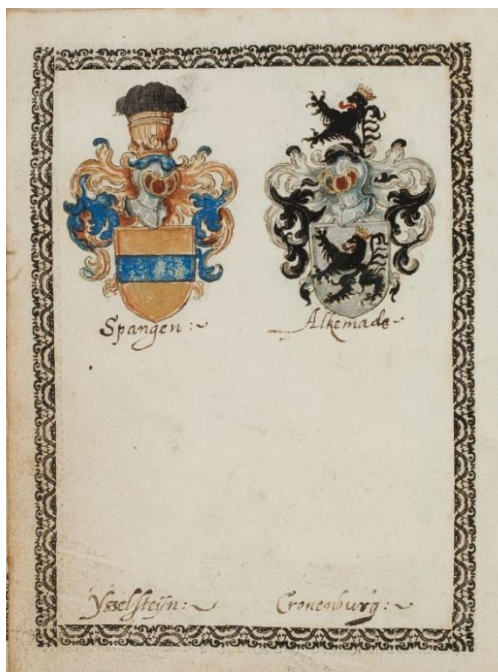 Spangen:~
Alkemade~
Ysselsteijn:~
Cronenburg:~